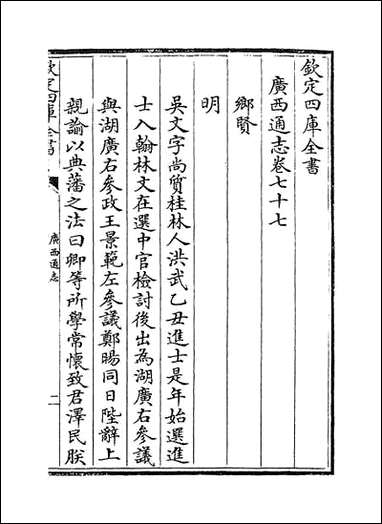 欽定四庫全書
廣西通志卷七十七
鄉賢
明
吳文字尚質桂林人洪武乙丑進士是年始選進
士入翰林文在選中官檢討後出為湖廣右參議
與湖廣右參政王景範左參議鄭暘同日陛辭上
親諭以典藩之法曰卿等所學常懷致君澤民朕
欽定四庫全書
廣西通志
二